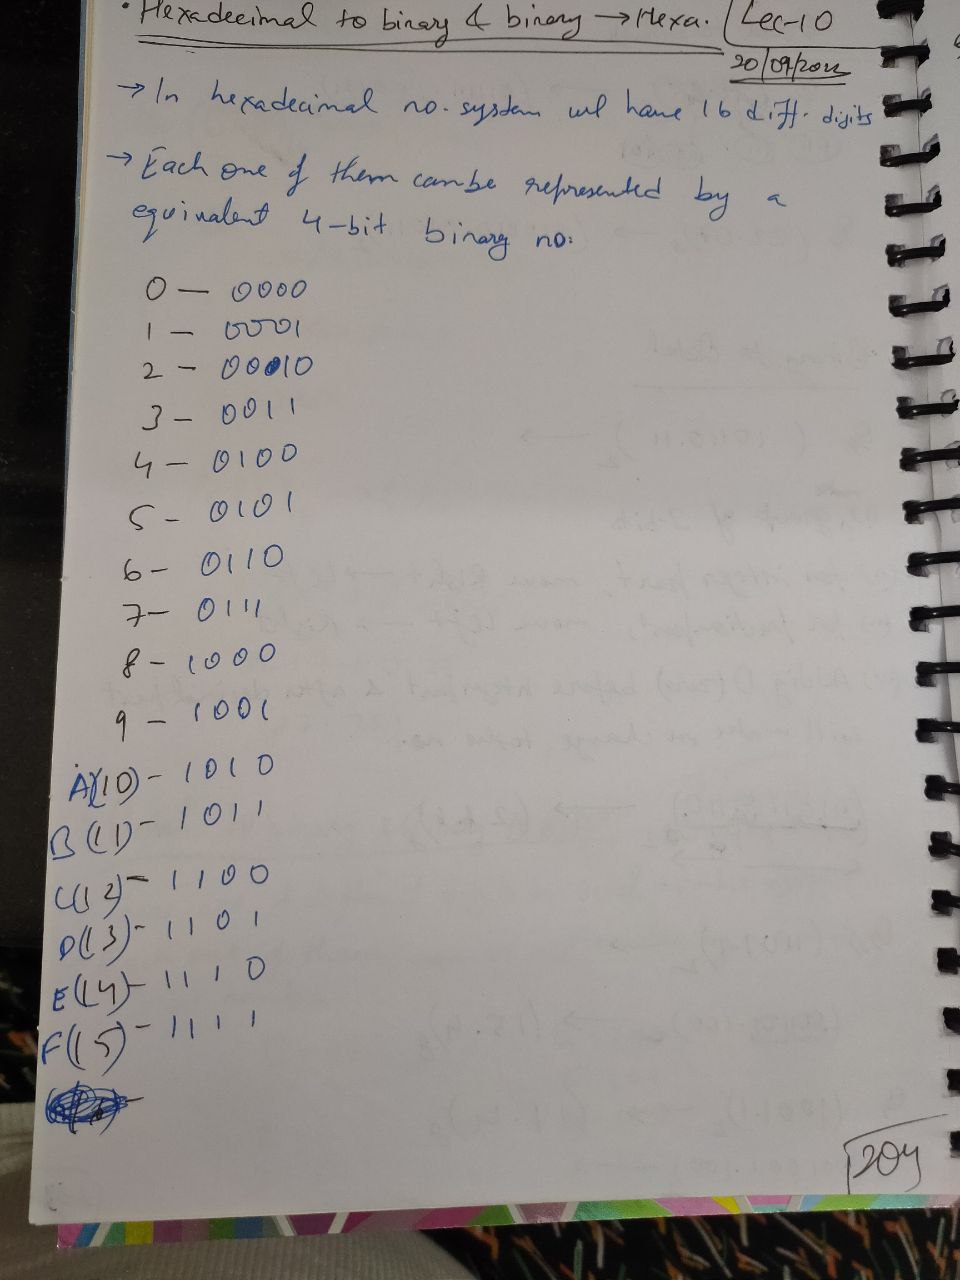 • Hexadecimal to binary & binary → Hexa.
Lec-10
20/09/2022
→ In hexadecimal no. system we have 16 diff. digits
→ Each one of them can be represented by a
equivalent 4-bit binary no:
0 — 0000
1 — 0001
2 — 0010
3 — 0011
4 — 0100
5 - 0101
6 - 0110
7 - 0111
8 - 1000
9 - 1001
A(10) - 1010
B(11) - 1011
C(12) - 1100
D(13) - 1101
E(14) - 1110
F(15) - 1111
204